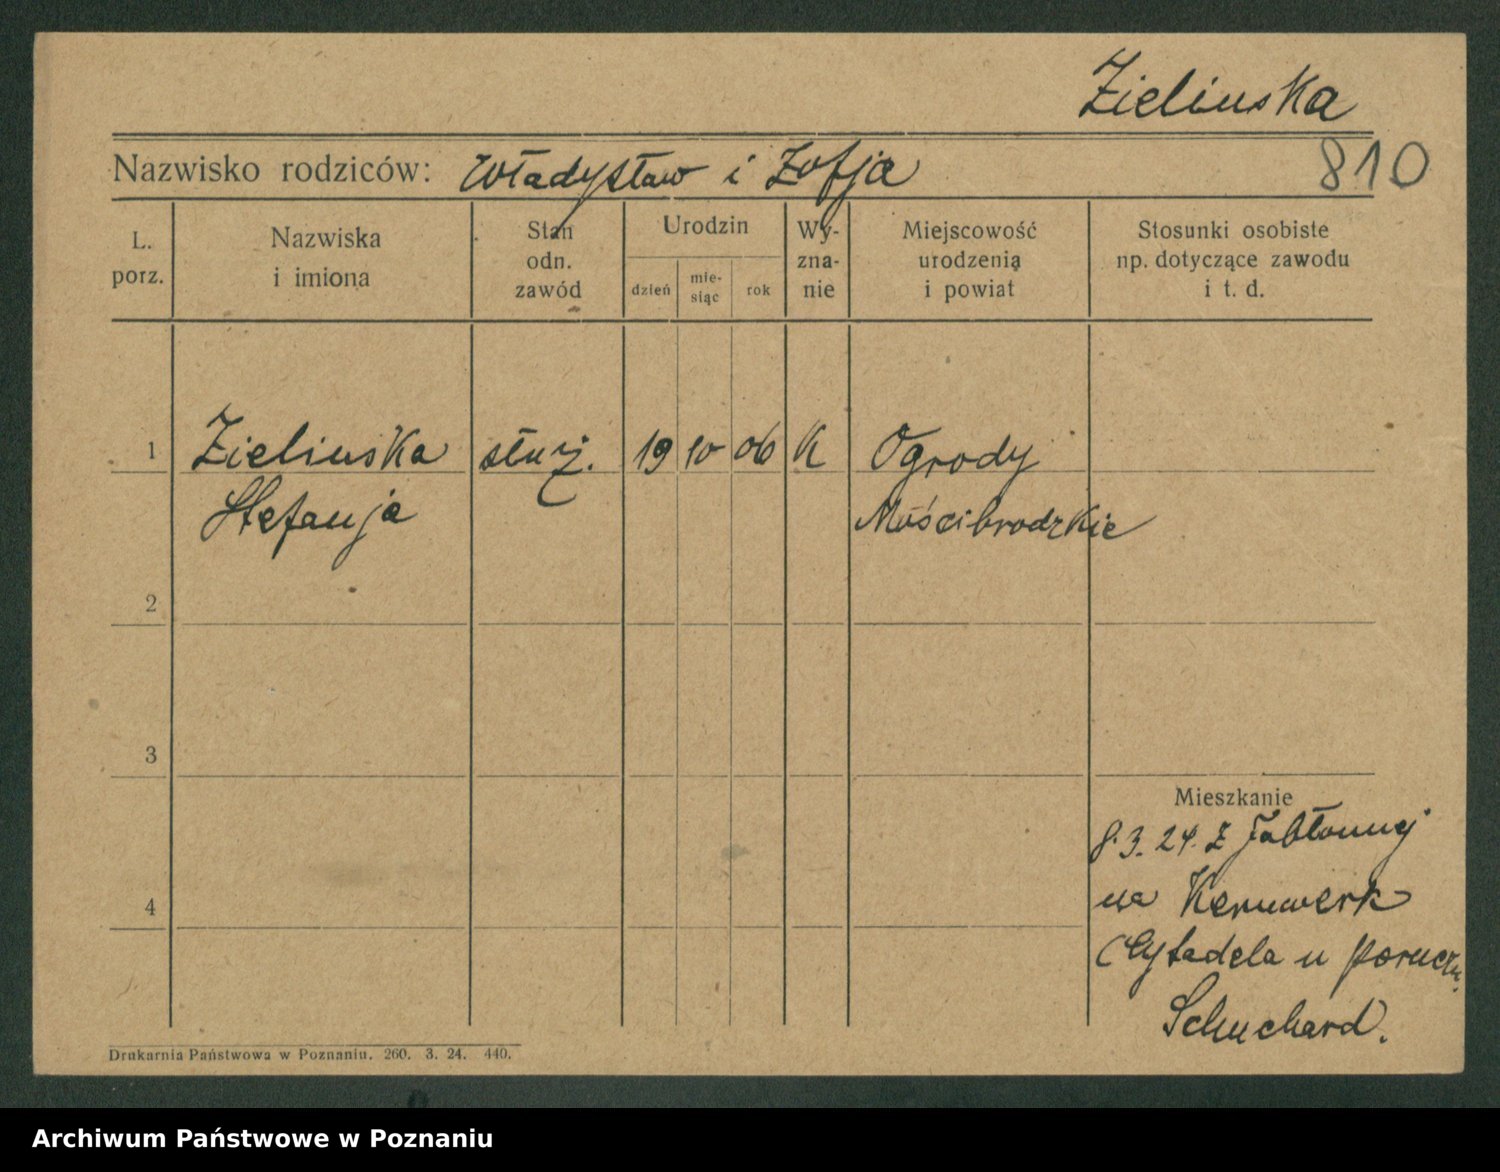 Zielinska
Nazwisko rodziców: Władysław i Zofja
810
L. porz.
Nazwiska i imiona
Stan odn. zawód
Urodzin
dzień
mie-
siąc
rok
Wy-
zna-
nie
Miejscowość
urodzenią
i powiat
Stosunki osobiste
np. dotyczące zawodu
i t. d.
1 Zielinska służ. 19 10 06 K Ogrody
Stefanja Mościbrodzkie
2
3
Mieszkanie
8.3.24. z Jabłonnej
4
na Kernwerk
Cytadela u porucz.
Schuchard.
Drukarnia Państwowa w Poznaniu. 260. 3. 24. 440.
Archiwum Państwowe w Poznaniu